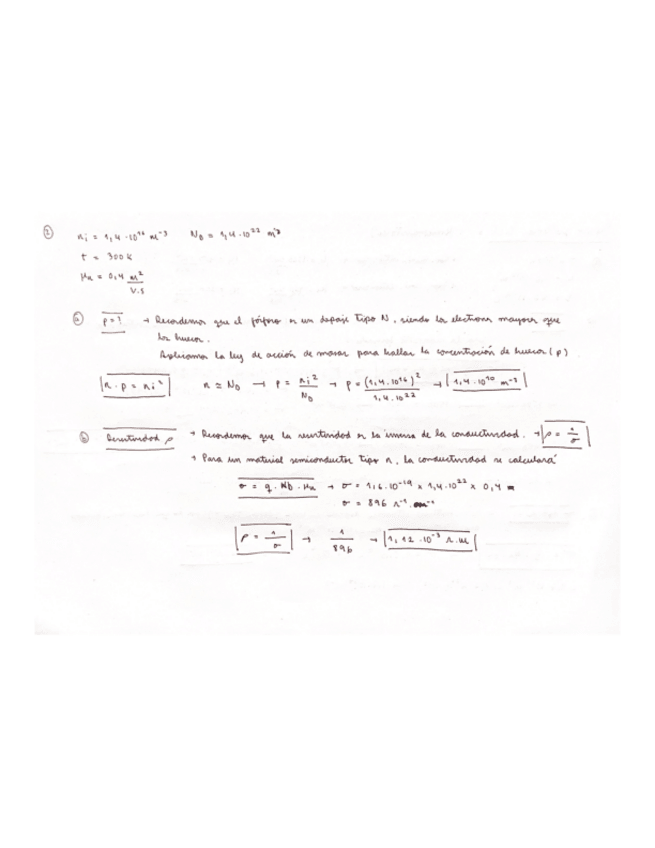 2 ni = 1,4 · 10^16 m^-3 N_D = 1,4 · 10^22 m^-3
t = 300 K
μn = 0,4 m²/V·s
a) p = ? → Recordemos que el fósforo es un dopaje tipo N, siendo los electrones mayores que
los huecos.
Aplicamos la ley de acción de masas para hallar la concentración de huecos (p)
n · p = ni² n ≃ N_D → p = ni²/N_D → p = (1,4 · 10^16)²/1,4 · 10^22 → 1,4 · 10^10 m^-3
b) Resistividad ρ → Recordemos que la resistividad es la inversa de la conductividad. → ρ = 1/σ
→ Para un material semiconductor tipo n, la conductividad se calculará
σ = q · N_D · μn → σ = 1,6 · 10^-19 x 1,4 · 10^22 x 0,4
σ = 896 Ω^-1 ·
ρ = 1/σ → 1/896 → 1,12 · 10^-3 Ω·m